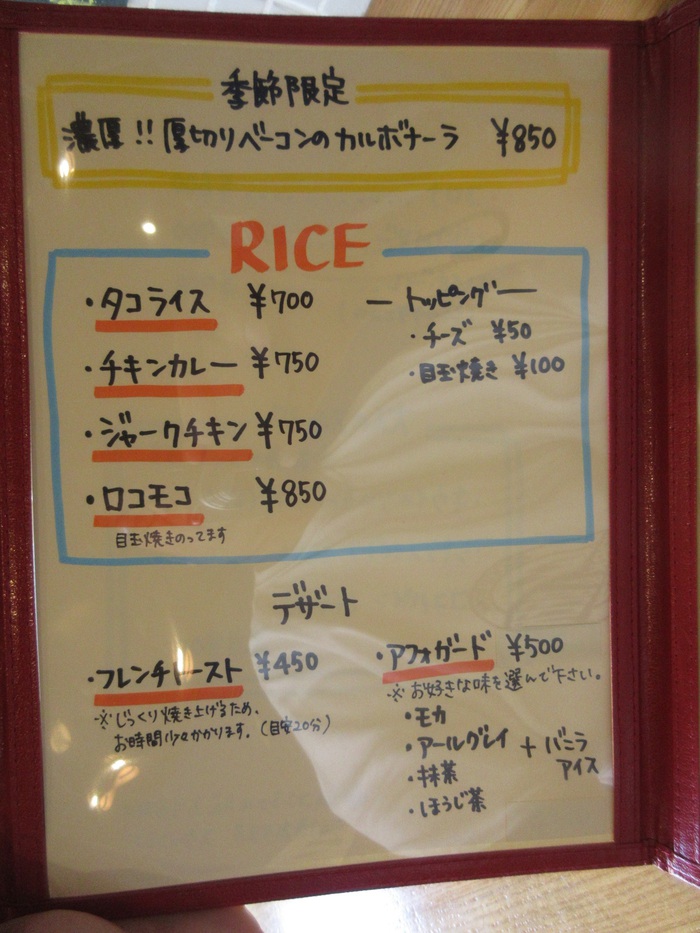 季節限定
濃厚!! 厚切りベーコンのカルボナーラ ¥850
RICE
・タコライス ¥700
・チキンカレー ¥750
・ジャークチキン ¥750
・ロコモコ ¥850
目玉焼きのってます
ートッピングー
・チーズ ¥50
・目玉焼き ¥100
デザート
・フレンチトースト ¥450
※じっくり焼き上げるため、
お時間少々かかります。(目安20分)
・アフォガード ¥500
※お好きな味を選んで下さい。
・モカ
・アールグレイ + バニラ
アイス
・抹茶
・ほうじ茶